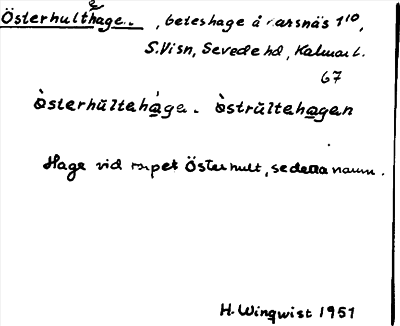 Österhulthage. , beteshage å 1/10,
S.Visn, Sevede hd, Kalmar l.
67
òsterhùltehága. òstrùltehagen
Hage vid Österhult, se detta namn.
H. Wingwist 1951